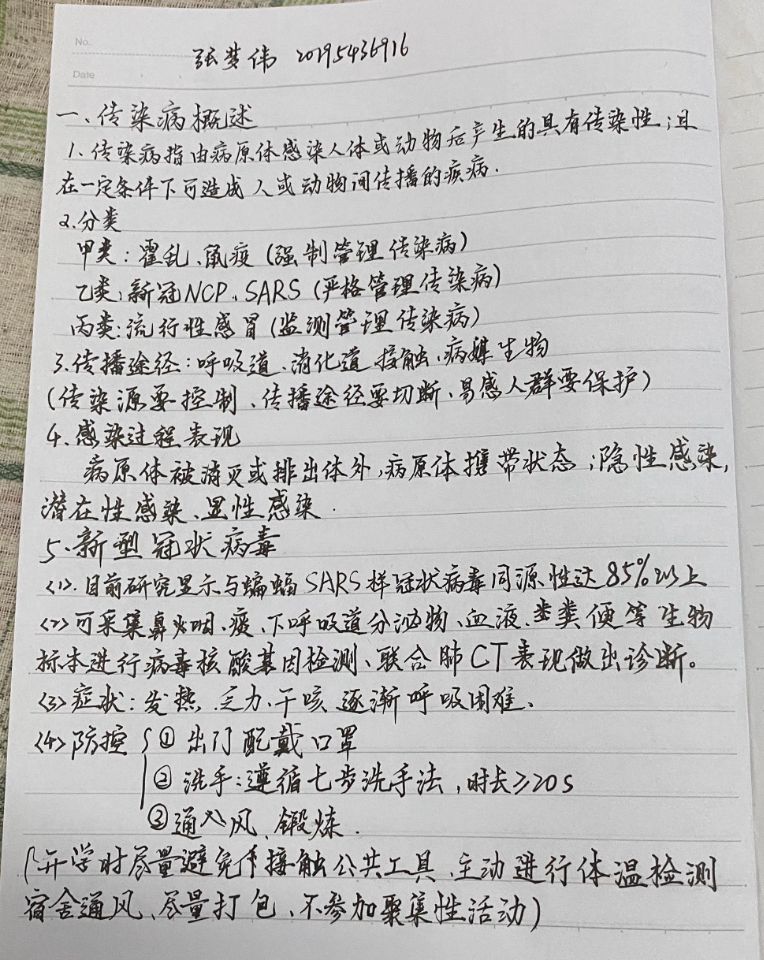 No.
张梦伟 20195436916
Date
一、传染病概述
1. 传染病指由病原体感染人体或动物后产生的具有传染性;且
在一定条件下可造成人或动物间传播的疾病.
2.分类
甲类:霍乱、鼠疫(强制管理传染病)
乙类:新冠NCP、SARS(严格管理传染病)
丙类:流行性感冒(监测管理传染病)
3.传播途径:呼吸道、消化道、接触、病媒生物
(传染源要控制、传播途径要切断、易感人群要保护)
4.感染过程表现
病原体被消灭或排出体外,病原体携带状态;隐性感染,
潜在性感染、显性感染.
5.新型冠状病毒
<1>.目前研究显示与蝙蝠SARS样冠状病毒同源性达85%以上
<2>可采集鼻咽、痰、下呼吸道分泌物、血液、粪便等生物
标本进行病毒核酸基因检测、联合肺CT表现做出诊断。
<3>症状:发热、乏力、干咳、逐渐呼吸困难、
<4>防控 ①出门配戴口罩
②洗手:遵循七步洗手法,时长≥20s
③通风、锻炼.
(开学时尽量避免接触公共工具、主动进行体温检测
宿舍通风、尽量打包、不参加聚集性活动)